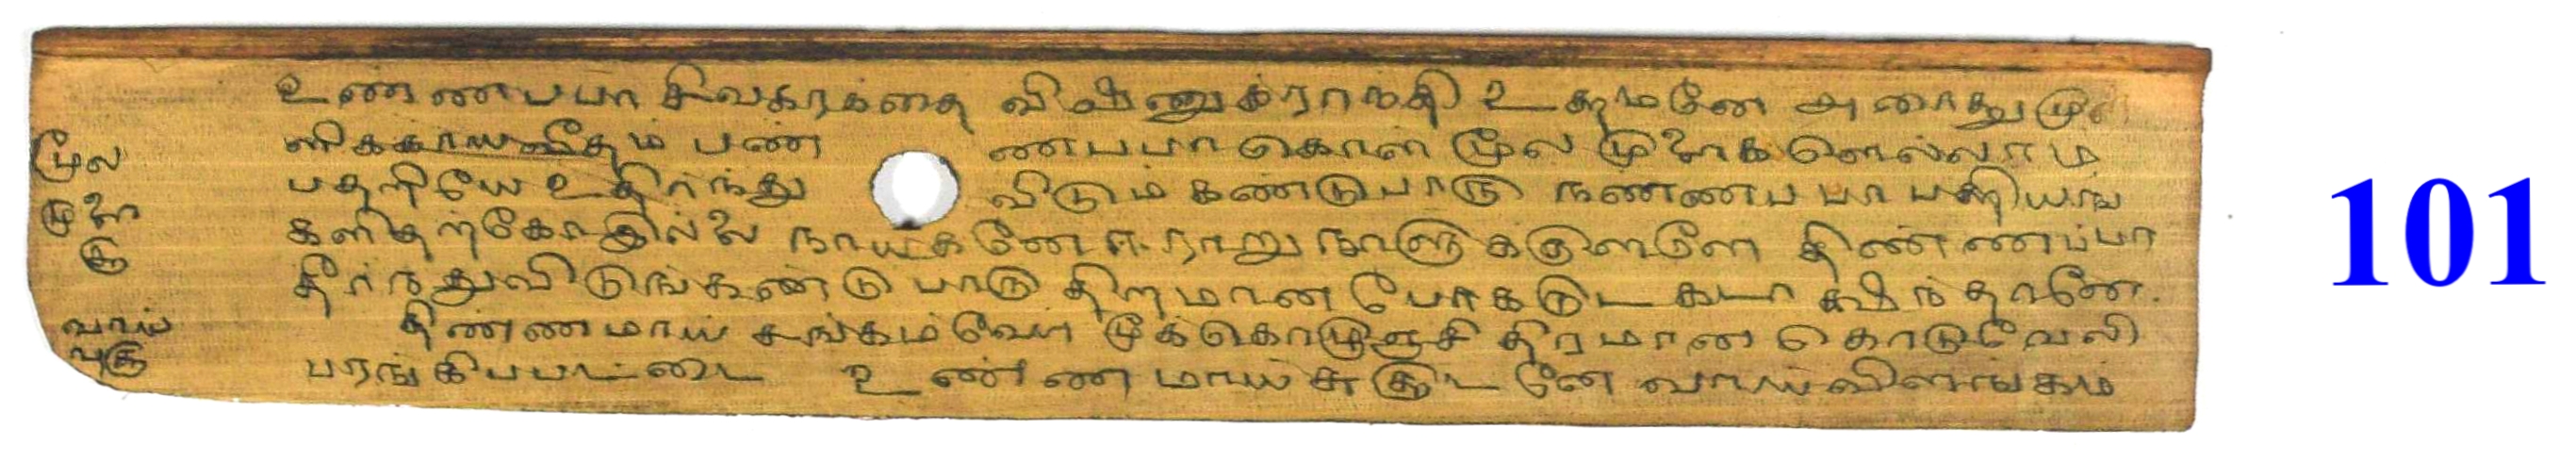 உண்ணபபா சிவகரக்தை விஷ்ணுக்ராந்தி உத்தமனே அரைத்து
மூல ளிககாயளவீதம் பண் ணபபா கொள் மூல முளைகளெல்லாம்
முளை பதறியே உதிர்ந்து விடும் கண்டுபாரு நண்ணபபா பணியாங்
கு களிதற்கோதில்லை நாயகனே ஈராறு நாளுக்குளளே திண்ணப்பா
தீர்ந்துவிடுங்கண்டு பாரு திறமான போகருட கடாக்ஷந்தானே.
வாய் திண்ணமாய் சங்கம்வேர் மூக்கொழுஞ்சி திரமான கொடுவேலி
வுகு பரங்கிபபட்டை உண்ணமாய் சுக்குடனே வாய்விளங்கம்
101